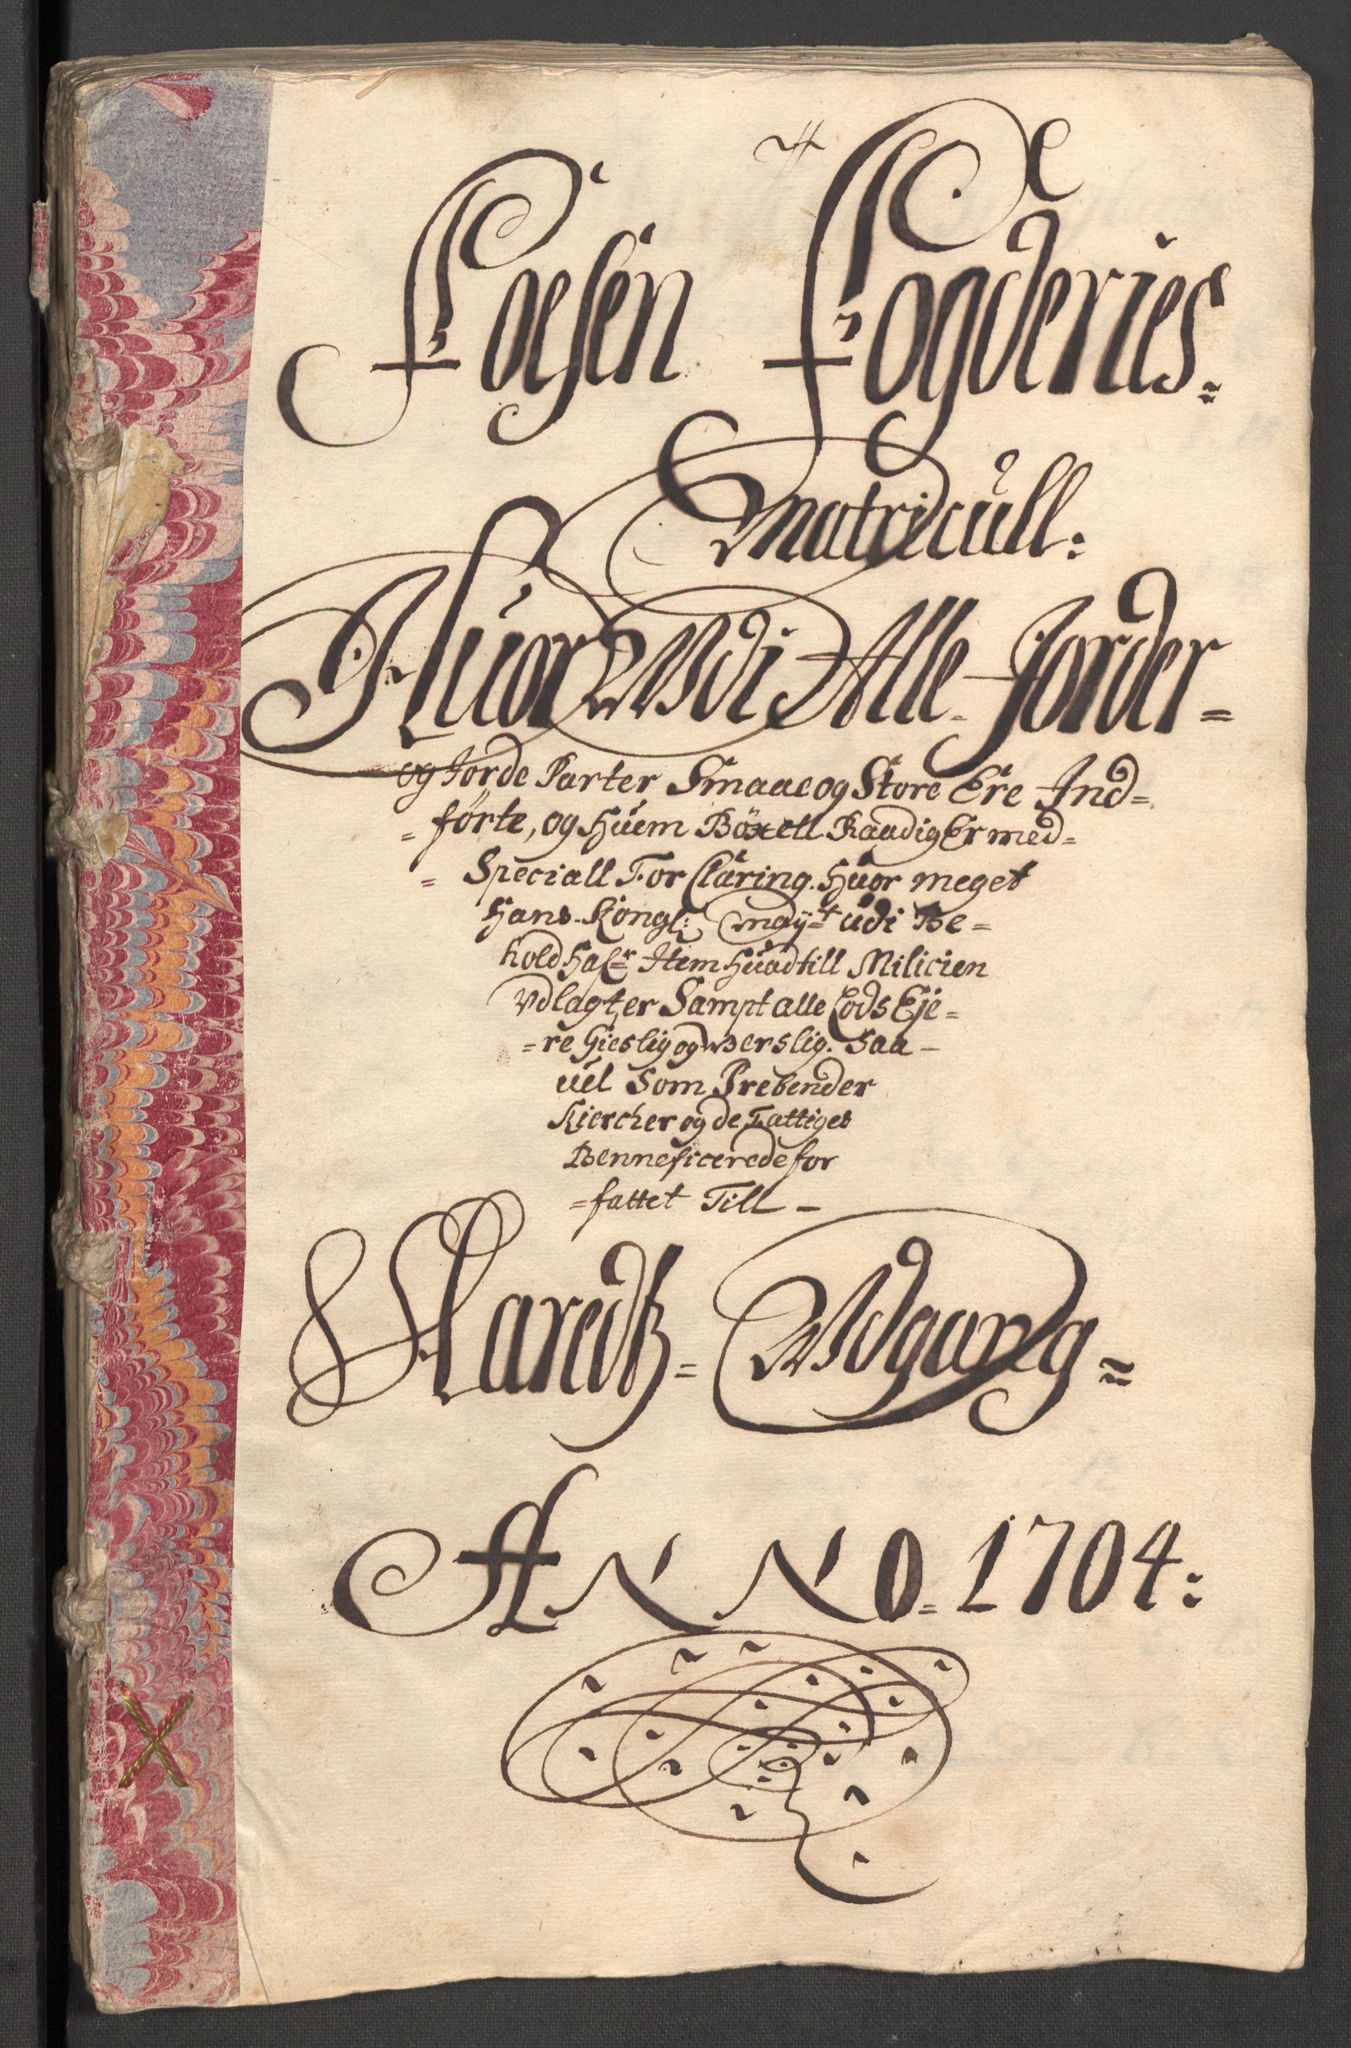 Foesen Fogderies
Matricull:
Huor Wdi Alle Jorder=
og Jorde Parter Smaae og Store Ere Ind=
=førte, og Huem Böxell Raadig Er med=
=Speciall For Claring. Huor meget
Hans Kongl: Maÿ:t udi Be=
hold Hafr Item Huad till Milicien
Vdlagt er Sampt alle Lods Eje=
=re Gieslig og Verslig. Saa-
uel Som Prebender
Kiercher og de Fattiges
Benneficerede for
=fattet Till-
Aaredtz- Wdgang=
ANNO=1704: